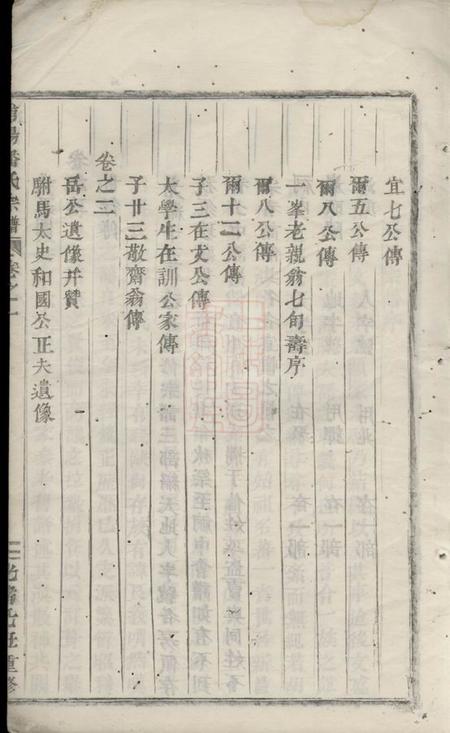 宜七公傳
爾五公傳
爾八公傳
一峯老親翁七旬壽序
爾八公傳
爾十二公傳
子三在文公傳
太學生在訓公家傳
子廿三敬齋翁傳
卷之三
岳公遺像并贊
駙馬太史和國公正夫遺像
陽潘氏宗譜 卷之一
重修